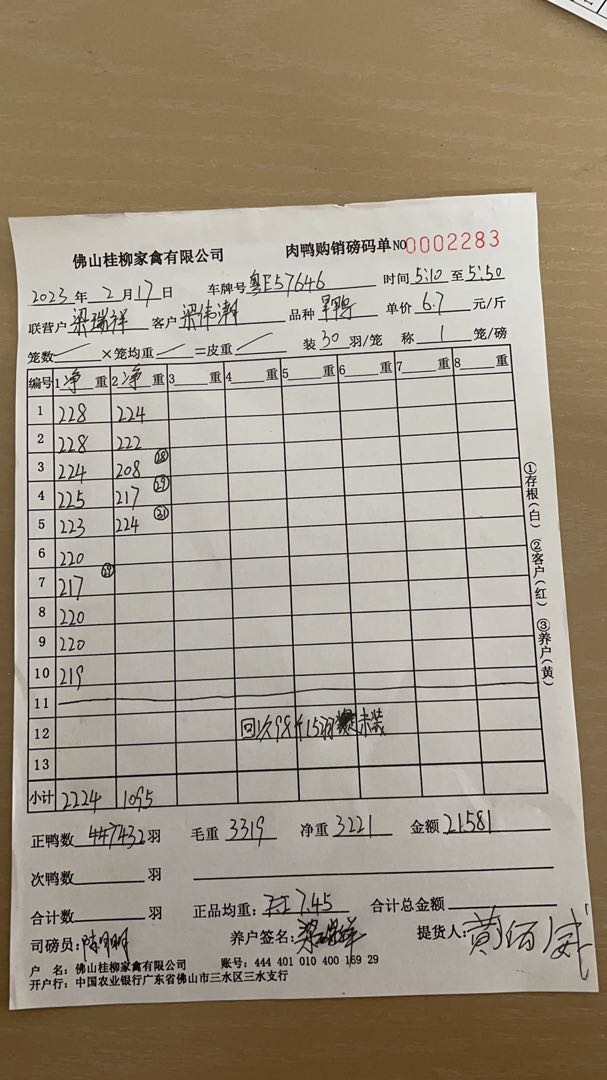 佛山桂柳家禽有限公司 肉鸭购销磅码单 NO 0002283
2023 年 2 月 17 日 车牌号 粤E57646 时间 5:10 至 5:50
联营户 梁瑞祥 客户 梁伟潮 品种 单价 6.7 元/斤
笼数 × 笼均重 = 皮重 装 30 羽/笼 称 1 笼/磅
编号 1 净 重 2 净 重 3 重 4 重 5 重 6 重 7 重 8 重
1 228 224
2 228 222
3 224 208 28
4 225 217 29
5 223 224 21
6 220
7 217 29
8 220
9 220
10 219
11
12 回次98斤15羽 未装
13
小计 2224 1095
①存根(白) ②客户(红) ③养户(黄)
正鸭数 432 羽 毛重 3319 净重 3221 金额 21581
次鸭数 羽
合计数 羽 正品均重: 7.45 合计总金额
司磅员: 养户签名: 梁瑞祥 提货人: 黄佰威
户 名: 佛山桂柳家禽有限公司 账号: 444 401 010 400 169 29
开户行: 中国农业银行广东省佛山市三水区三水支行